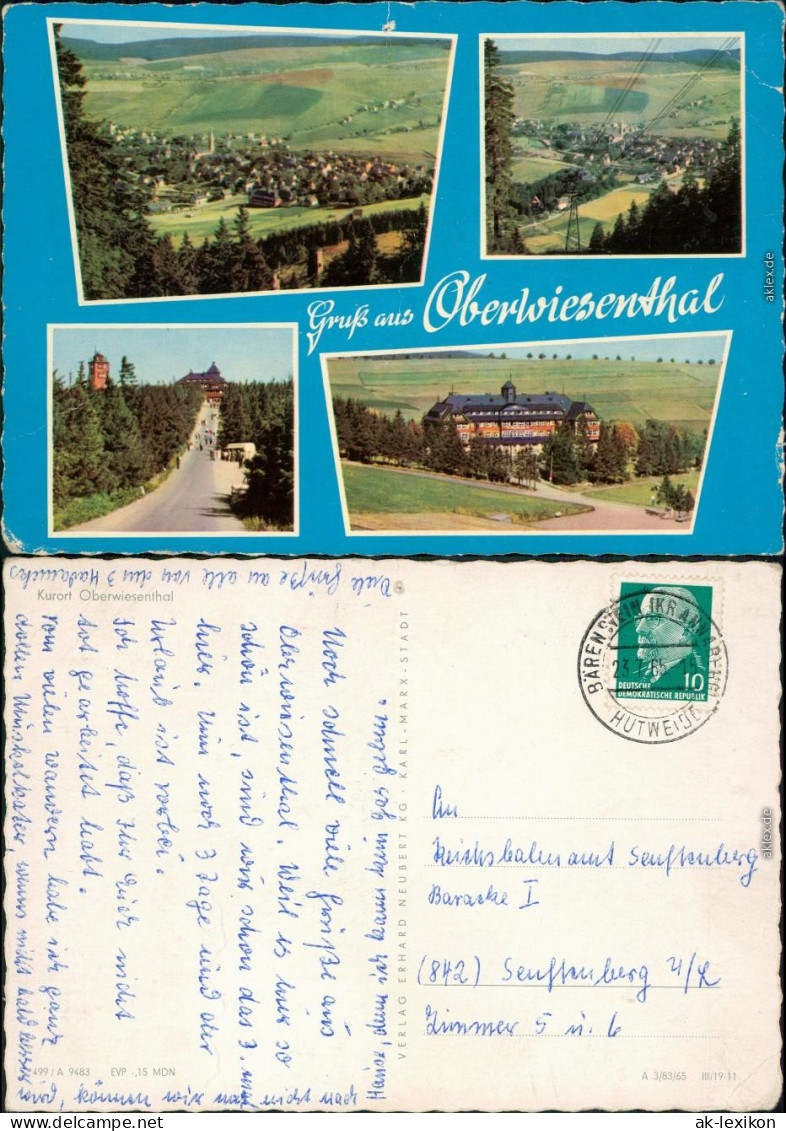 Gruß aus Oberwiesenthal
aklex.de
Viele Grüße an alle von den 3
Kurort Oberwiesenthal
Noch schnell viele Grüße aus
Oberwiesenthal. Weil es hier so
schön ist, sind wir schon das 3. mal
hier. Nun noch 3 Tage und der
Urlaub ist vorbei.
Ich hoffe, daß Ihr Euch nicht
tot gearbeitet habt.
Vom vielen wandern habe ich ganz
dollen Muskelkater, wenns nicht bald besser
wird, können wir gar nicht nach
Hause,
499/A 9483 EVP -,15 MDN
VERLAG ERHARD NEUBERT KG · KARL-MARX-STADT
BÄRENSTEIN (KR ANNABERG)
23.7.65 -15
HUTWEIDE
10
DEUTSCHE
DEMOKRATISCHE REPUBLIK
An
Reichsbahnamt Senftenberg
Baracke I
(842) Senftenberg N/L
Zimmer 5 u. 6
aklex.de
A 3/83/65 III/19/11
ak-lexikon.de